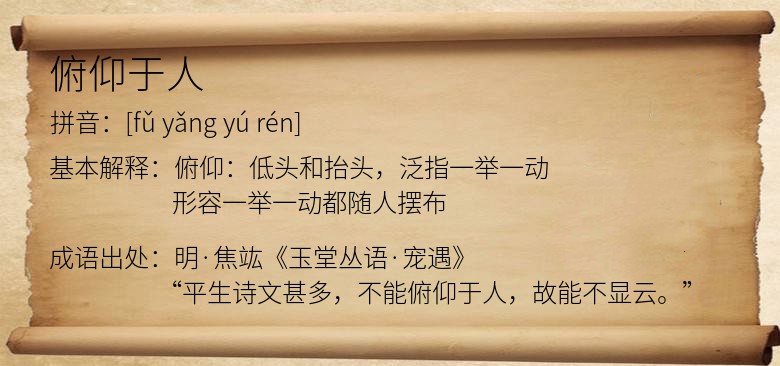 俯仰于人
拼音：[fǔ yǎng yú rén]
基本解释：俯仰：低头和抬头，泛指一举一动
形容一举一动都随人摆布
成语出处：明·焦竑《玉堂丛语·宠遇》
“平生诗文甚多，不能俯仰于人，故能不显云。”